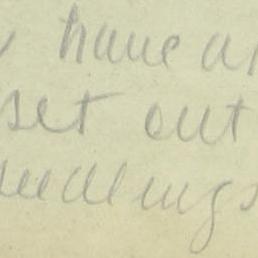 have a
set out
eedlings